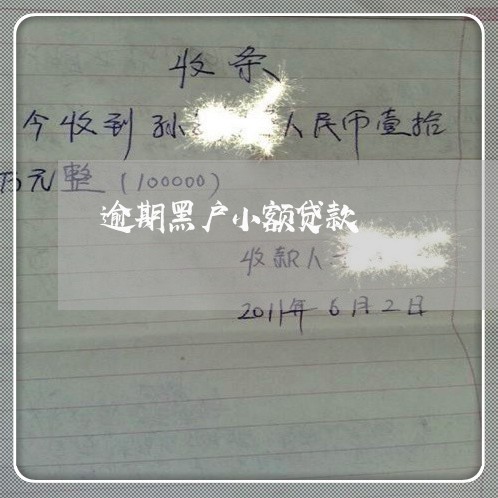 收条
今收到孙 人民币壹拾
万元整(100000)
逾期黑户小额贷款
收款人
2011年6月2日